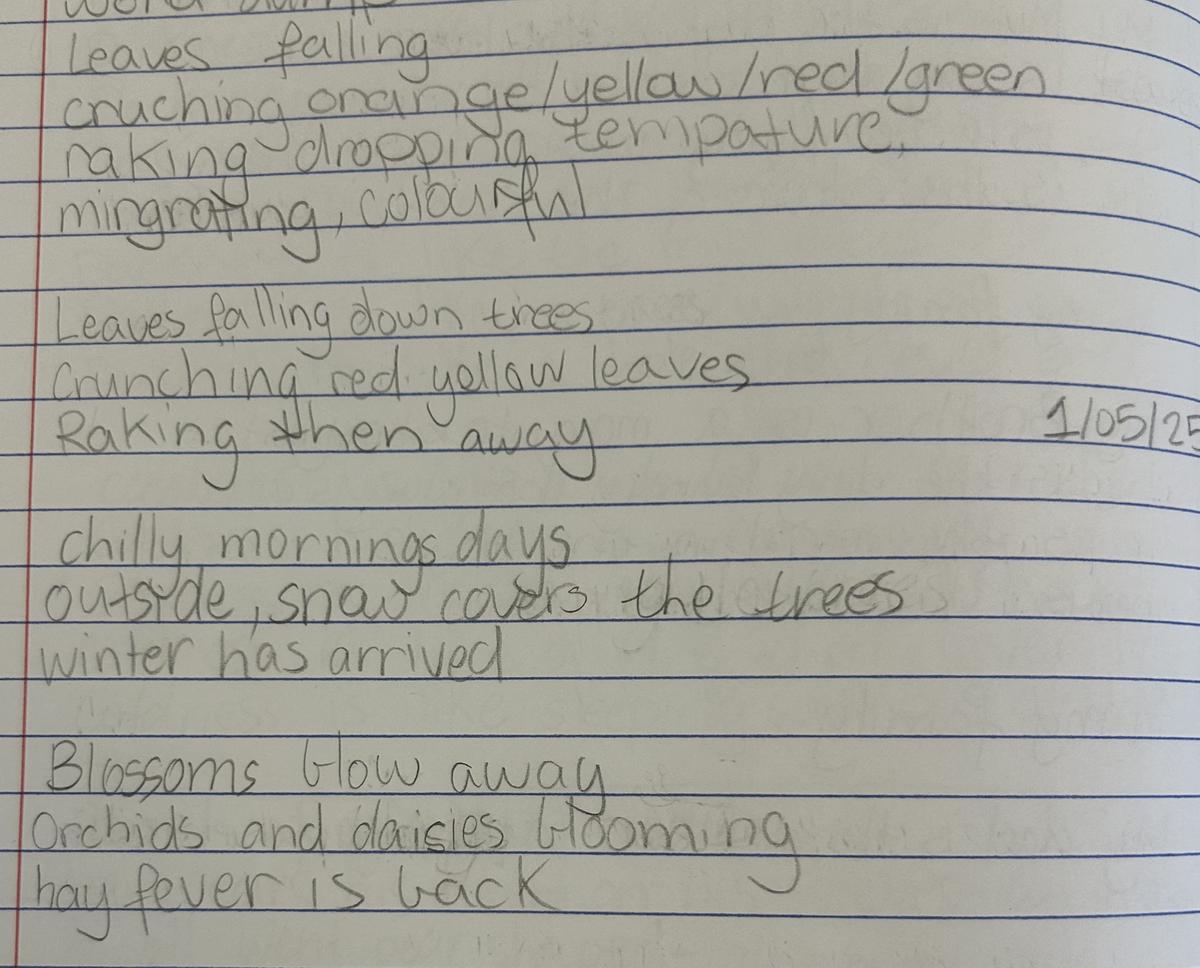 Leaves falling
cruching orange/yellow/red/green
raking dropping tempature,
mingrating, colourful
Leaves falling down trees
Crunching red yellow leaves
Raking then away
1/05/25
chilly mornings days
outside, snow covers the trees
winter has arrived
Blossoms blow away
Orchids and daisies blooming
hay fever is back